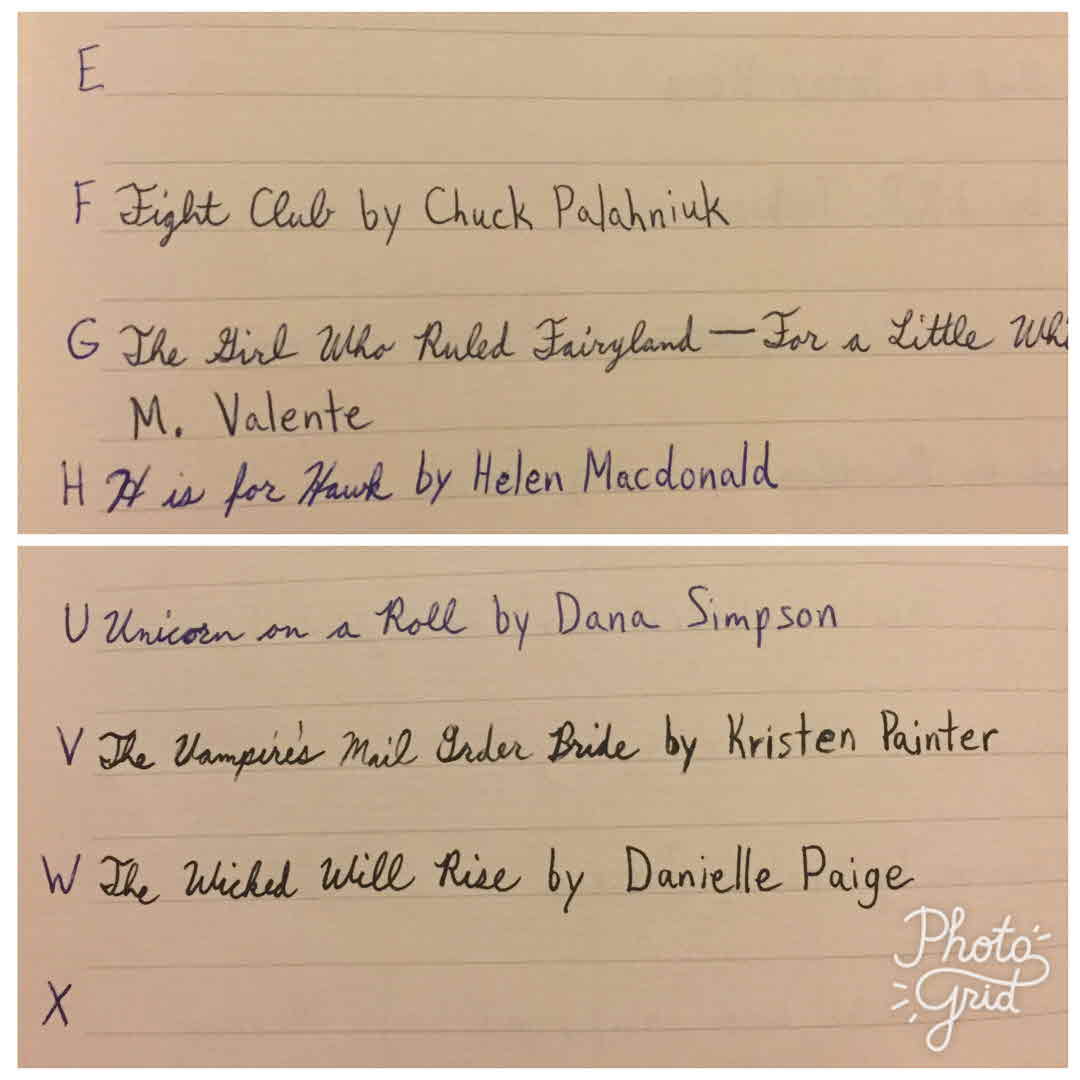 E
F Fight Club by Chuck Palahniuk
G The Girl Who Ruled Fairyland—For a Little Whi
M. Valente
H H is for Hawk by Helen Macdonald
U Unicorn on a Roll by Dana Simpson
V The Vampire's Mail Order Bride by Kristen Painter
W The Wicked Will Rise by Danielle Paige
X
Photo
Grid